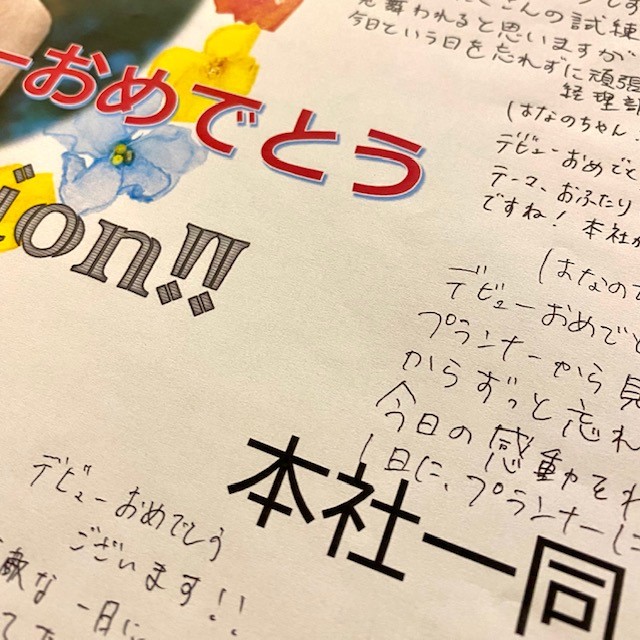 ーおめでとう
ion!!
の試練
を奪われると思いますが
今日という日を忘れずに頑張
経理部
はなのちゃん
デビューおめでと
テーマ、おふたり
ですね! 本社か
はなのち
デビューおめでと
プランナーから見
からずっと忘れ
今日の感動をわ
1日に、プランナーに
本社一同
デビューおめでとう
ございます!!
敵な一日に